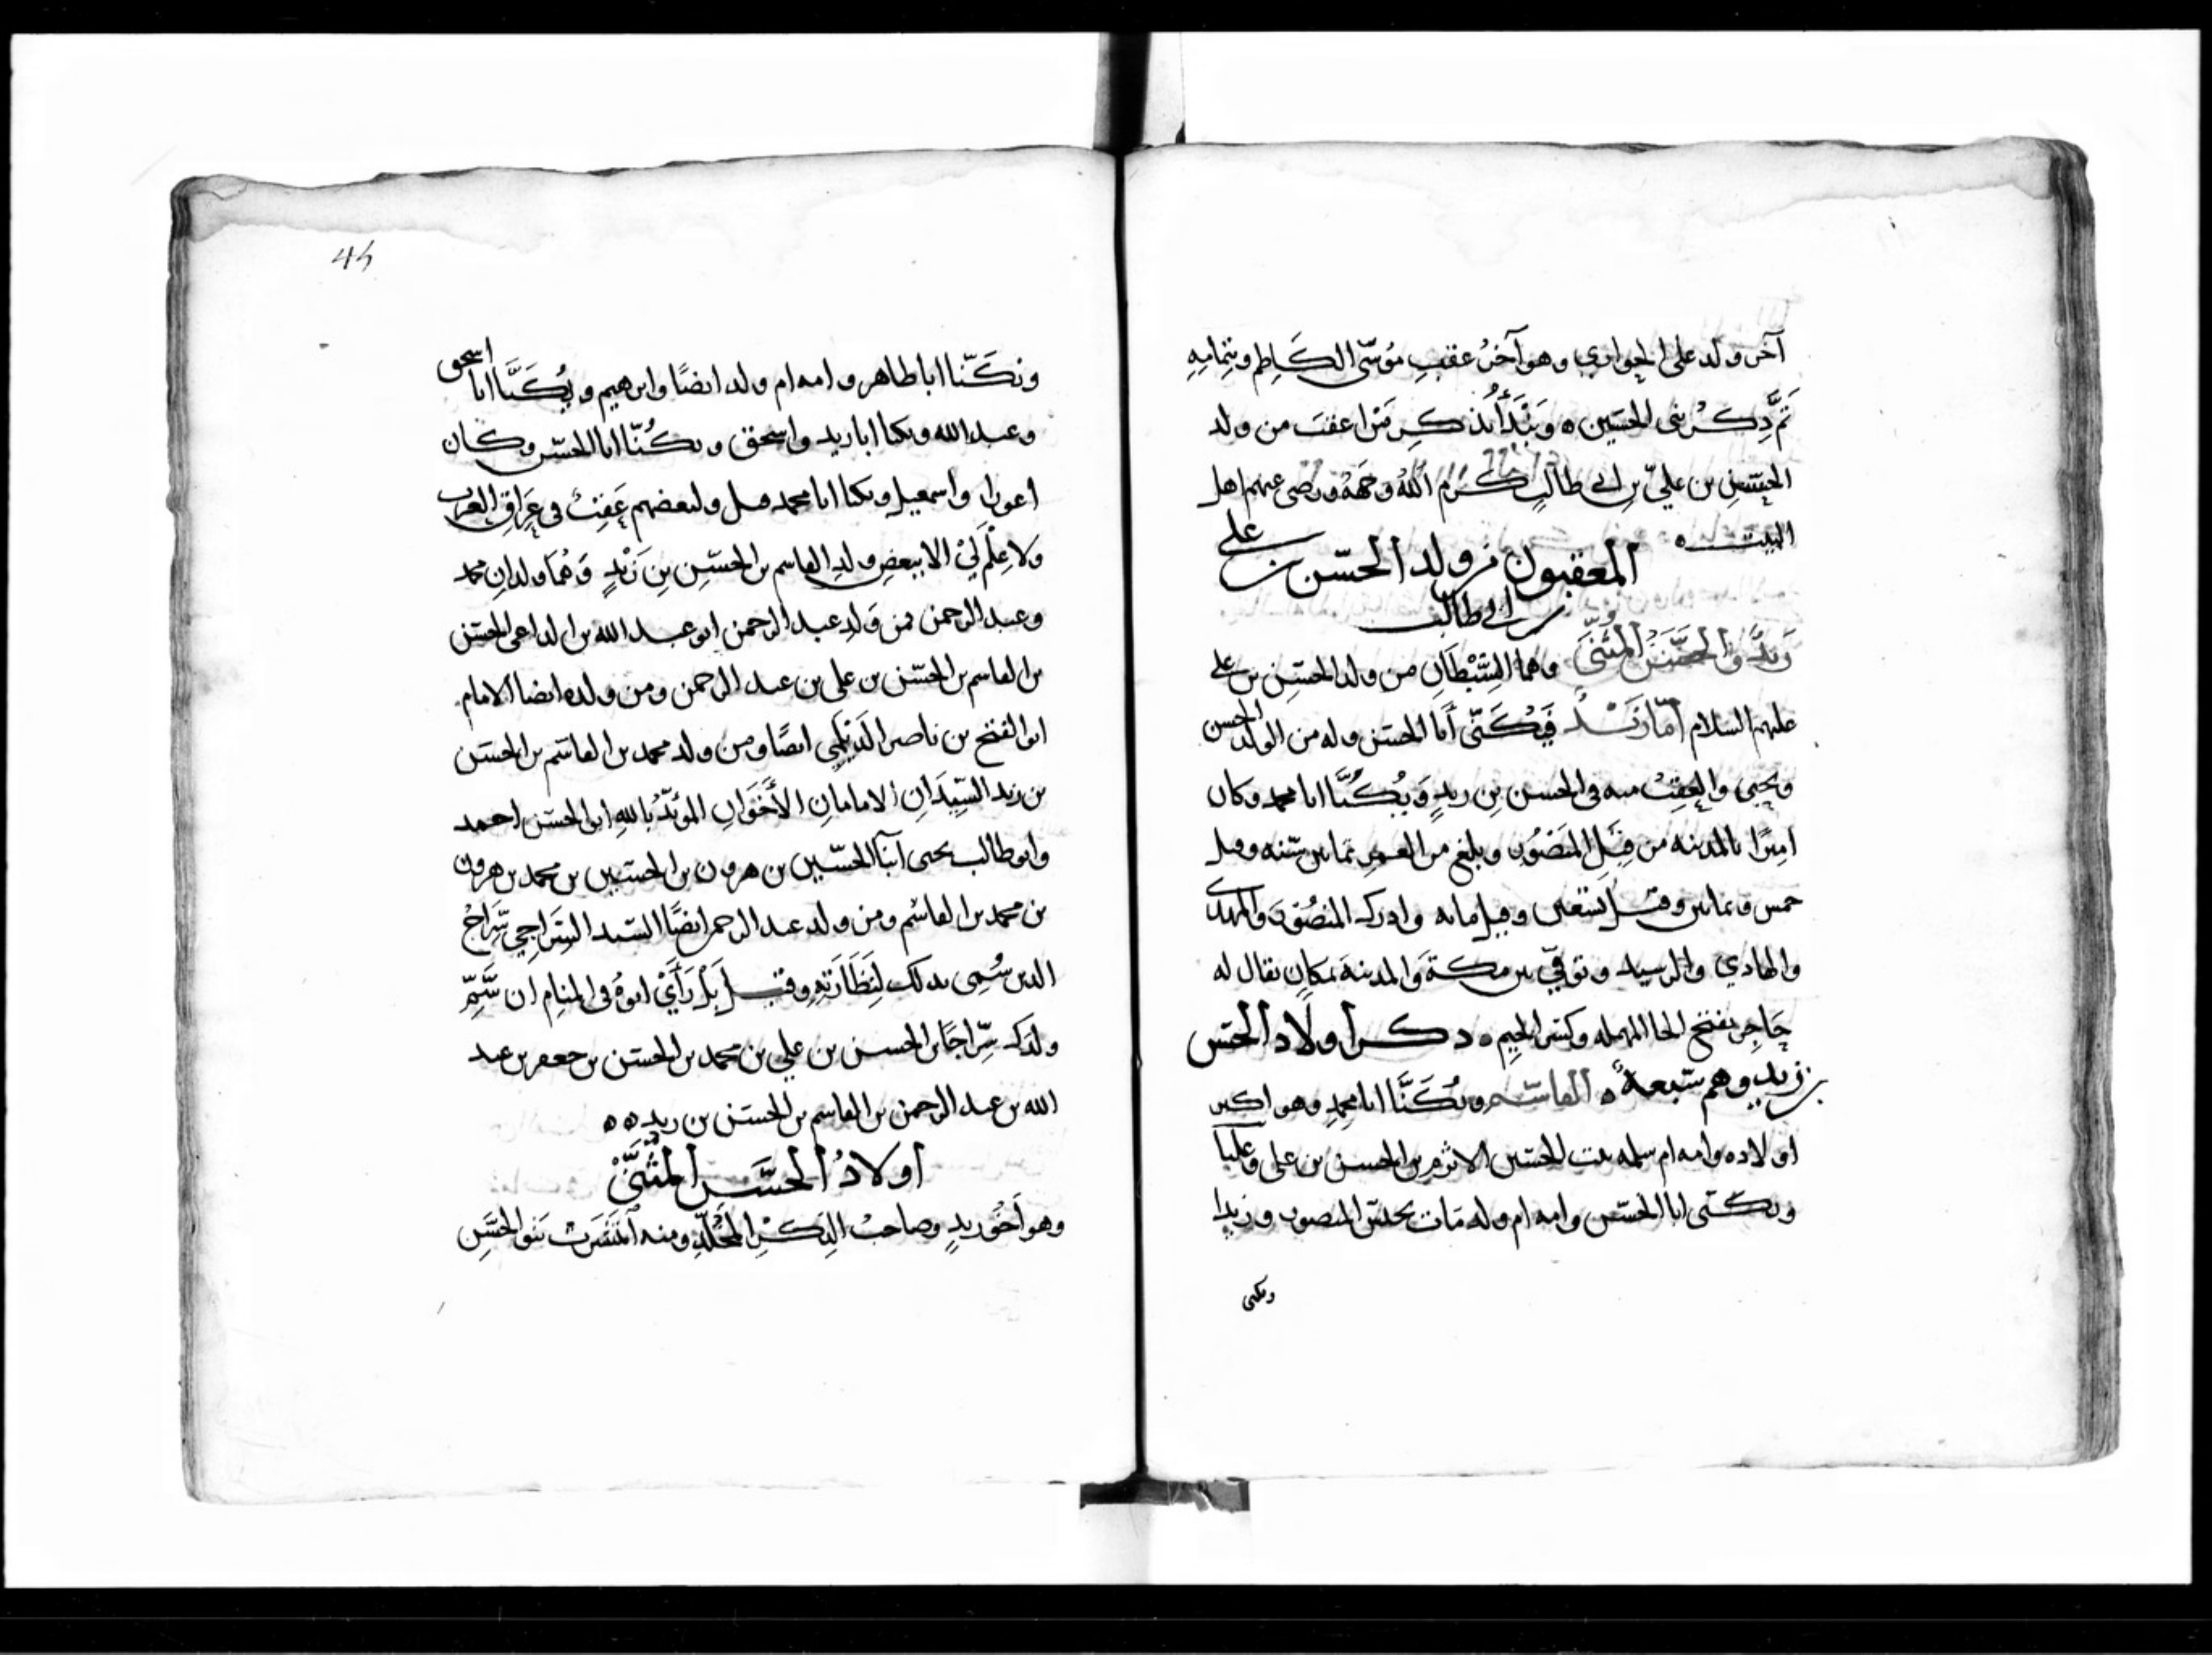 آخر ولد على الحواري وهو آخر عقب موسى الكاظم وبتمامه
تم ذكر بنى الحسين ه ونبدأ بذكر من اعقب من ولد
الحسن بن علي بن ابي طالب كرم الله وجهه ورضى عنهم اهل
البيت ه
المعقبون من ولد الحسن بن علي
بن ابي طالب
زيد والحسن المثنى وهما السبطان من ولد الحسن بن علي
عليهم السلام أما زيد فيكنى أبا الحسن وله من الولد الحسن
ويحيى والعقب منه في الحسن بن زيد ويكنا ابا محمد وكان
اميرا بالمدينه من قبل المنصور وبلغ من العمر ثمانين سنه وقيل
خمس وثمانين وقيل تسعين وقيل مايه وادرك المنصور والمهدي
والهادي والرسيد وتوفي بين مكة والمدينة بمكان يقال له
حاجر بفتح الحا المهمله وكسر الجيم ه ذكر أولاد الحسن
بن زيد وهم سبعة ه القاسم ويكنا ابا محمد وهو اكبر
اولاده وامه ام سلمه بنت الحسين الاثرم بن الحسن بن على وعليا
ويكنى ابا الحسن وامه ام ولد مات بحبس المنصور وزيدا
ويكنى
ويكنا ابا طاهر وامه ام ولد ايضا وابرهيم ويكنا ابا اسحق
وعبد الله ويكنا ابا زيد واسحق ويكنا ابا الحسن وكان
اعورا واسمعيل ويكنا ابا محمد قيل ولبعضهم عقب في عراق العرب
ولا علم لي الا ببعض ولد القاسم بن الحسن بن زيد وهما ولدان محمد
وعبد الرحمن فمن ولد عبد الرحمن ابو عبد الله بن الداعي الحسن
بن القاسم بن الحسن بن على بن عبد الرحمن ومن ولده ايضا الامام
ابو الفتح بن ناصر الديلمي ايضا ومن ولد محمد بن القاسم بن الحسن
بن زيد السيدان الامامان الأخوان المؤيد بالله ابو الحسن احمد
وابو طالب يحيى ابنا الحسين بن هرون بن الحسين بن محمد بن هرون
بن محمد بن القاسم ومن ولد عبد الرحمن ايضا السيد السراجي سراج
الدين سمى بذلك لنظارته وقيل بل رأى ابوه في المنام ان سم
ولدك سراجا بن الحسن بن علي بن محمد بن الحسن بن جعفر بن عبد
الله بن عبد الرحمن بن القاسم بن الحسن بن زيد ه ه
أولاد الحسن المثنى
وهو أخو زيد وصاحب الذكر المخلد ومنه انتشرت بنو الحسن